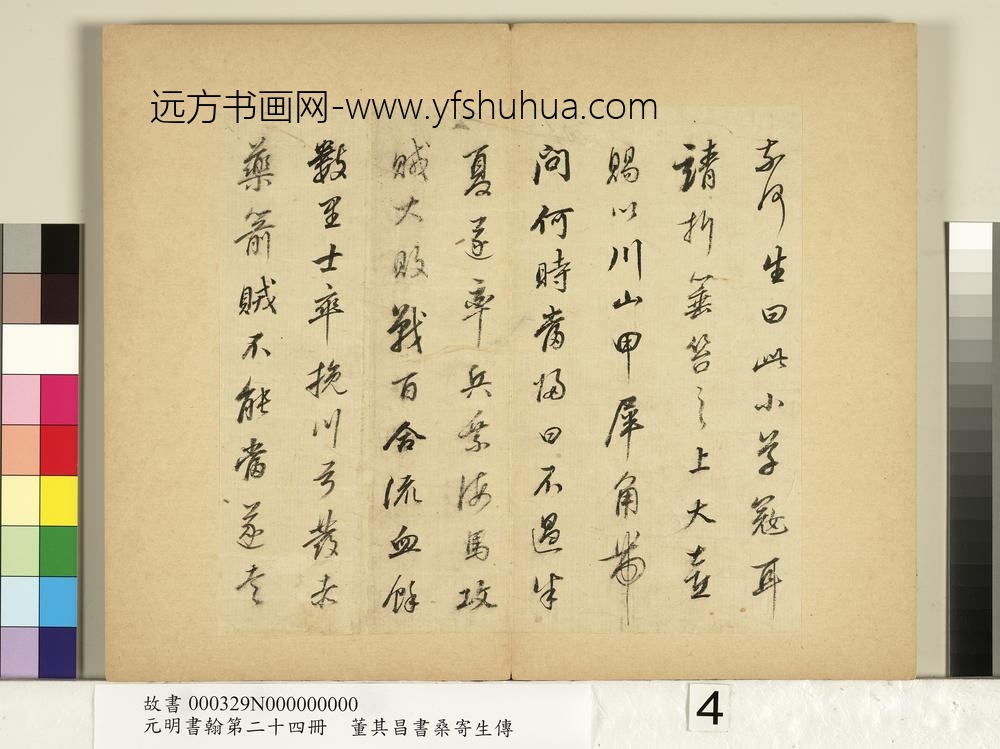 远方书画网-www.yfshuhua.com
奈何生曰此小草寇耳
請折箠笞之上大喜
賜以川山甲犀角帶
問何時當歸曰不過半
夏遂率兵乘海馬攻
賊大敗戰百合流血餘
數里士卒挽川弓發赤
藥箭賊不能當遂走
故書 000329N000000000
元明書翰第二十四冊 董其昌書桑寄生傳
4